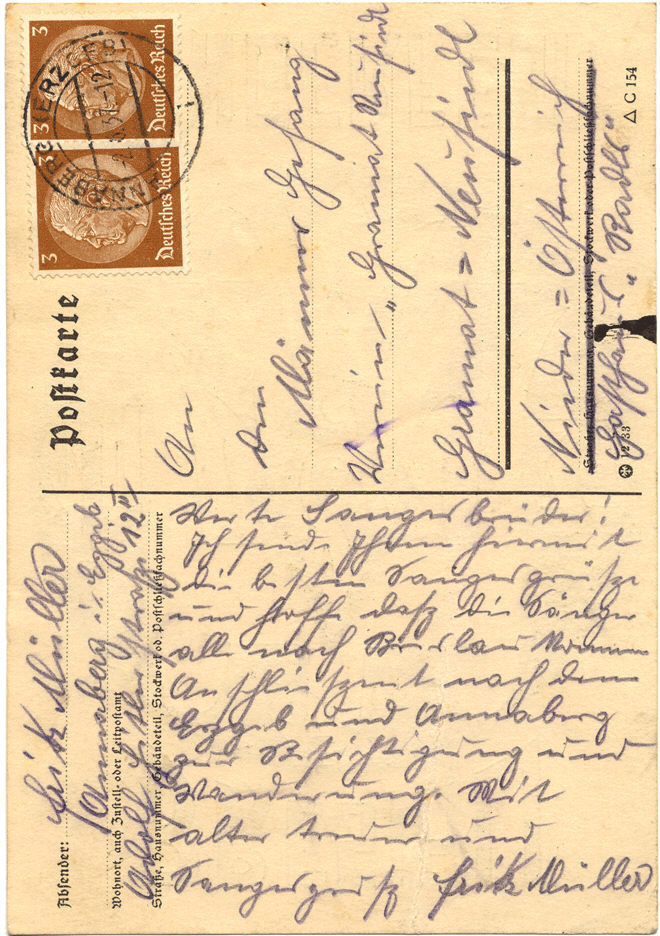 Postkarte
3 Deutsches Reich
3 Deutsches Reich
3
ANNABERG (ERZGEB)
An
den
Männer Gesang
Verein „Gramat Neusiedl
Gramat = Neusiedl
Nieder = Österreich
Straße, Hausnummer, Gebäudeteil, Stockwerk oder Postschließfachnummer
Gasthaus „Radls"
12 33
△ C 154
Absender: Fritz Müller
Annaberg i. Erzgeb
Wohnort, auch Zustell- oder Leitpostamt
Adolf Hitler straße 12 III
Straße, Hausnummer, Gebäudeteil, Stockwerk od. Postschließfachnummer
Werte Sangesbrüder!
Ich sende Ihnen hiermit
die besten Sangesgrüße
und hoffe daß die Sänger
alle nach Breslau kommen
Anschließend nach dem
Erzgeb und Annaberg
zur Besichtigung und
Wanderung. Mit
alter treuer und
Sangesgruß Fritz Müller